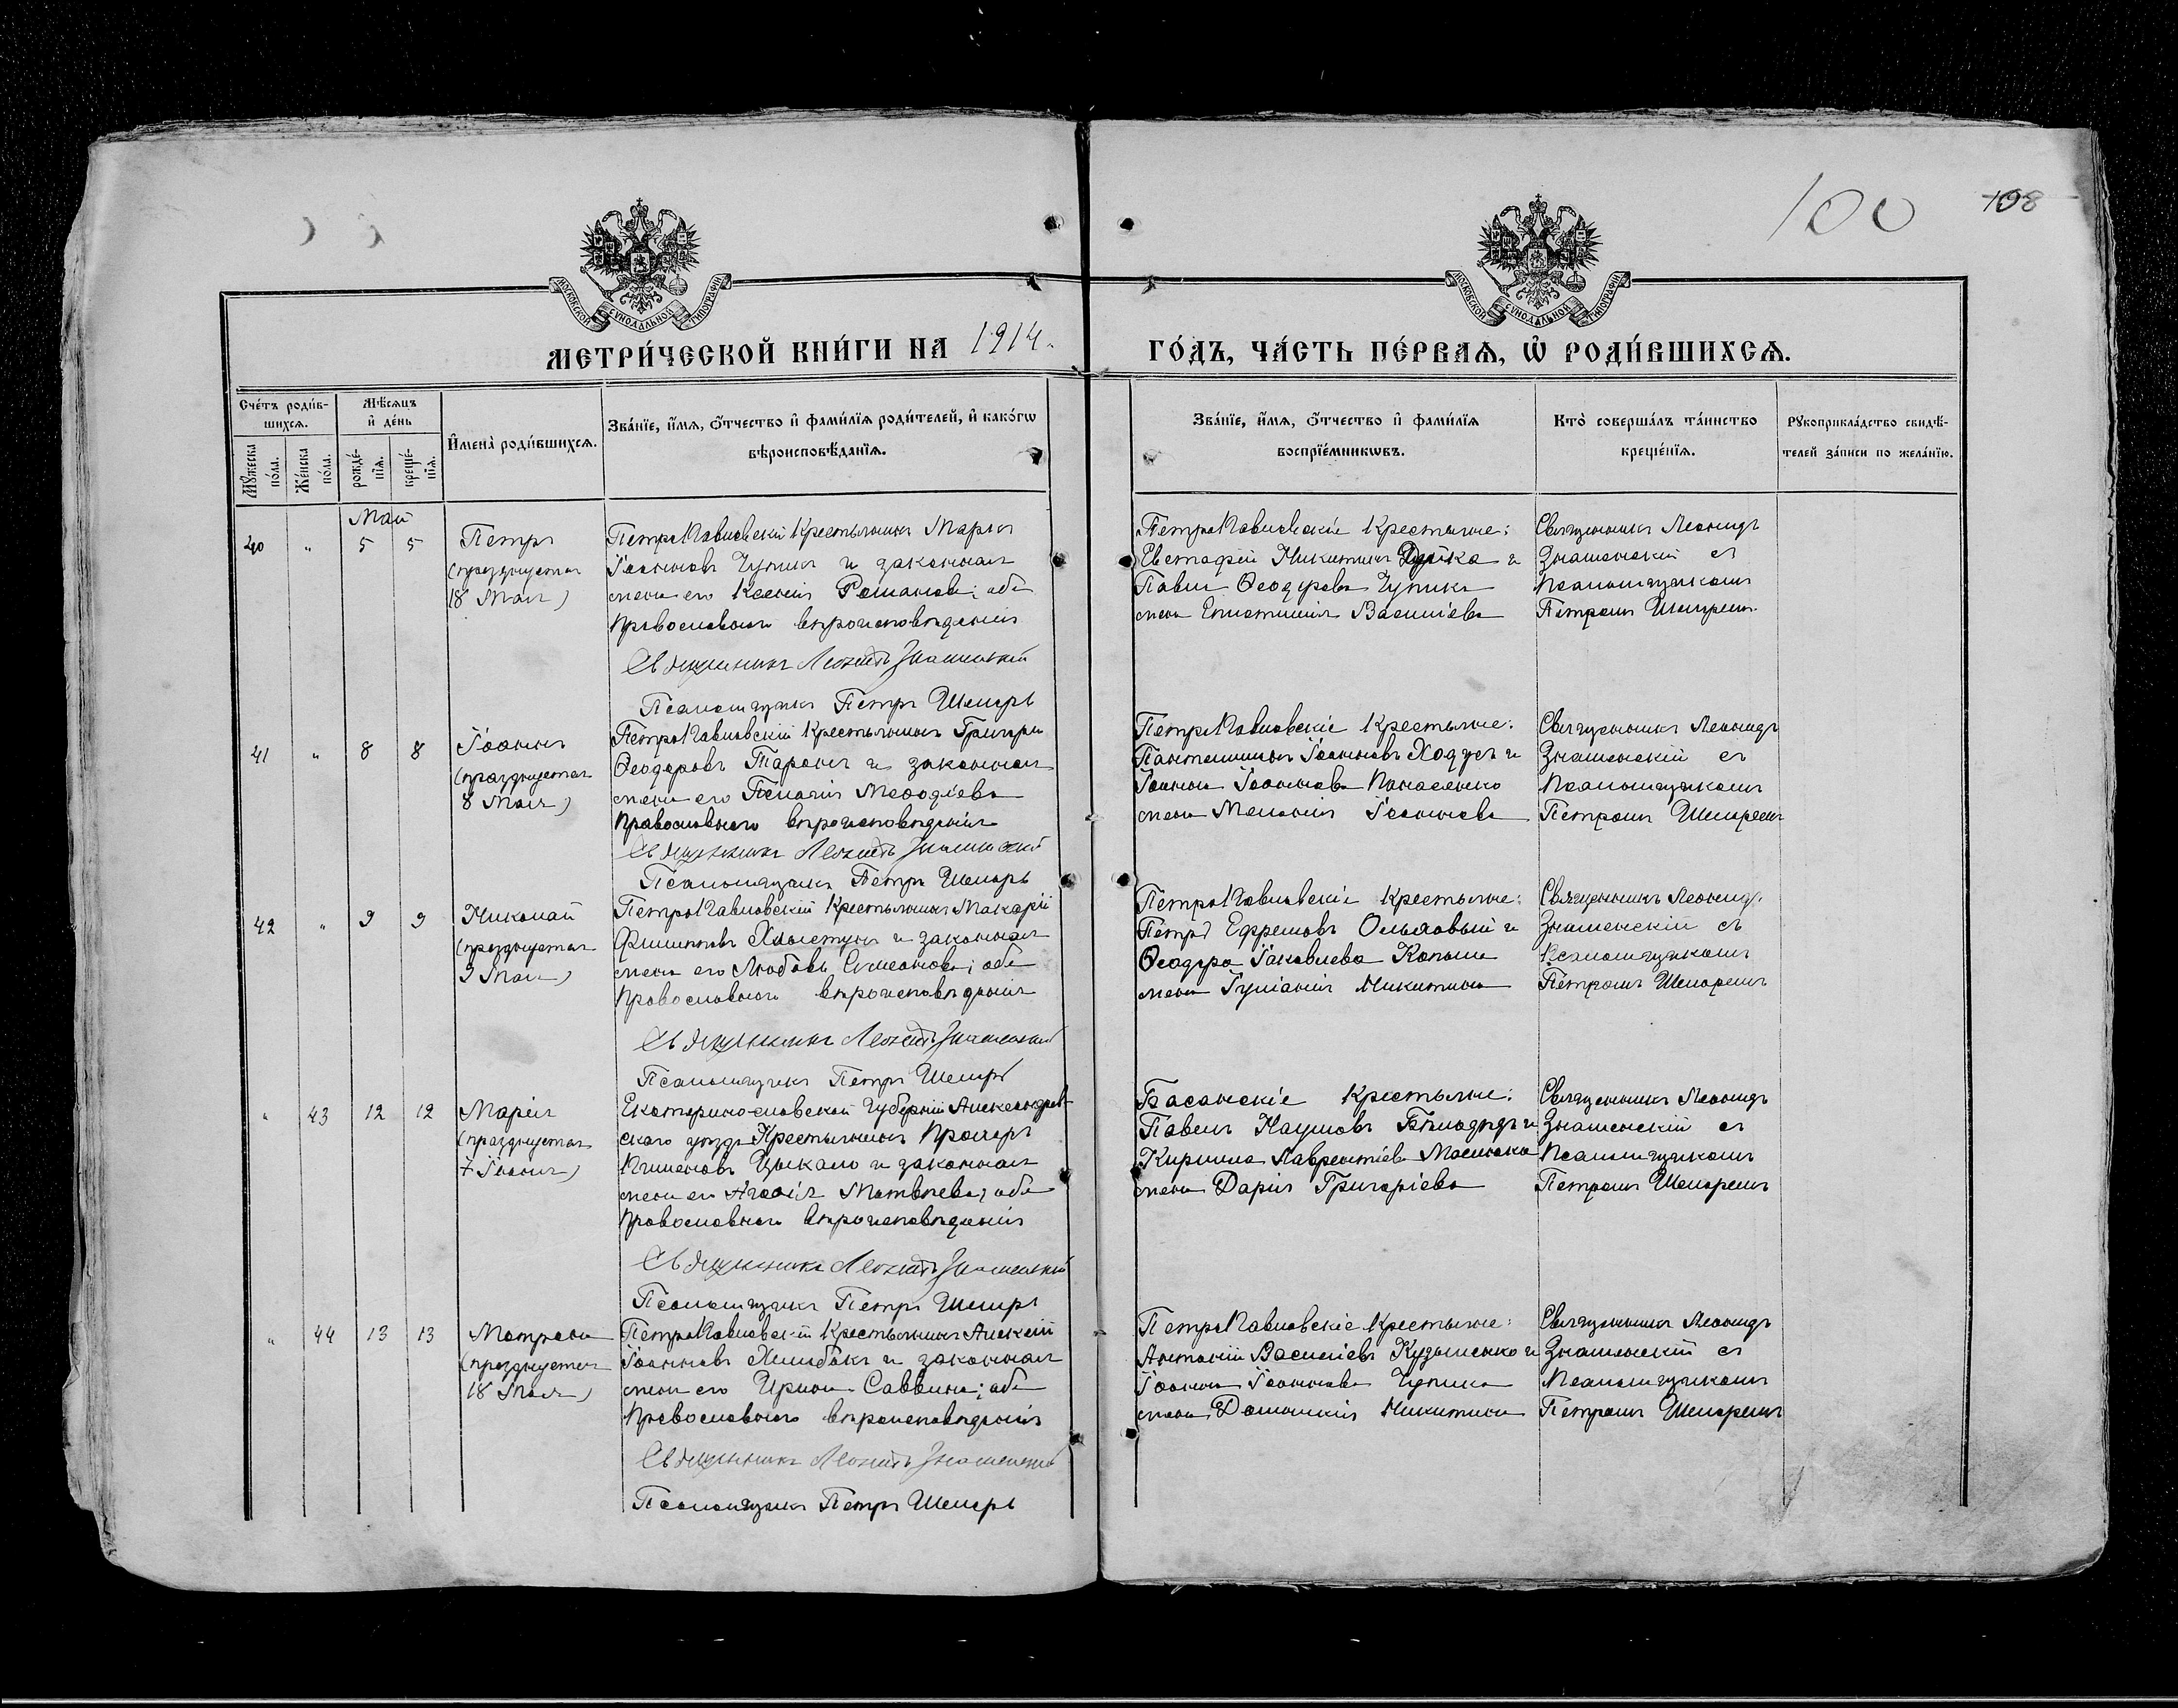 100 108
МОСКОВСКОЙ СѴНОДАЛЬНОЙ ТИПОГРАФІИ
МОСКОВСКОЙ СѴНОДАЛЬНОЙ ТИПОГРАФІИ
МЕТРИ́ЧЕСКОЙ КНИ́ГИ НА 1914. ГО́ДЪ, ЧА́СТЬ ПЕ́РВАѦ, Ѡ҆ РОДИ́ВШИХСѦ.
Сче́тъ роди́в-
шихсѧ.
Мѣ́сѧцъ
и҆ де́нь
Мꙋ́жеска
по́ла.
Же́нска
по́ла.
рожде́-
нїѧ.
креще́-
нїѧ.
И҆мена̀ роди́вшихсѧ.
Зва́нїе, и҆́мѧ, ѻ҆́тчество и҆ фами́лїѧ роди́телей, и҆ како́гѡ
вѣроисповѣ́данїѧ.
Зва́нїе, и҆́мѧ, ѻ҆́тчество и҆ фами́лїѧ
воспрїе́мникѡвъ.
Кто̀ соверша́лъ та́инство
креще́нїѧ.
Рꙋкоприкла́дство свидѣ́-
телей за́писи по жела́нїю.
Май
40 " 5 5
Петръ
(празднуется
18 Мая)
ПетроПавловскій Крестьянинъ Маркъ
Іоанновъ Чупикъ и законная
жена его Ксенія Романова; оба
Православнаго вѣроисповѣданія
Священникъ Леонидъ Знаменскій
Псаломщикъ Петръ Шепарь
ПетроПавловскіе Крестьяне:
Евстафій Никитинъ и
Павла Ѳеодорова Чупика
жена Епистимія Василіева
Священникъ Леонидъ
Знаменскій съ
Псаломщикомъ
Петромъ Шепаремъ
41 " 8 8
Іоаннъ
(празднуется
8 Мая)
ПетроПавловскій Крестьянинъ Григорій
Ѳеодоровъ Таранъ и законная
жена его Пелагія Меѳодіева
Православнаго вѣроисповѣданія
Священникъ Леонидъ Знаменскій
Псаломщикъ Петръ Шепарь
ПетроПавловскіе Крестьяне:
Пантелимонъ Іоанновъ Ходусъ и
Іоанна Іоаннова Панасенко
жена Меланія Іоаннова
Священникъ Леонидъ
Знаменскій съ
Псаломщикомъ
Петромъ Шепаремъ
42 " 9 9
Николай
(празднуется
9 Мая)
ПетроПавловскій Крестьянинъ Макарій
Филипповъ Хлыстунъ и законная
жена его Любовь Симеонова; оба
Православнаго вѣроисповѣданія
Священникъ Леонидъ Знаменскій
Псаломщикъ Петръ Шепарь
ПетроПавловскіе Крестьяне:
Петръ Ефремовъ Ольховый и
Ѳеодора Іаковлева Капыша
жена Іуліанія Никитина
Священникъ Леонидъ
Знаменскій съ
Псаломщикомъ
Петромъ Шепаремъ
" 43 12 12
Марія
(празднуется
7 Іюня)
Екатеринославской Губерніи Александров-
скаго уѣзда Крестьянинъ Прохоръ
Пименовъ Цыкало и законная
жена его Агаѳія Матвѣева; оба
Православнаго вѣроисповѣданія
Священникъ Леонидъ Знаменскій
Псаломщикъ Петръ Шепарь
Басанскіе Крестьяне:
Павелъ Наумовъ Бѣлодѣдъ и
Кирилла Лаврентіева Маслюка
жена Дарія Григоріева
Священникъ Леонидъ
Знаменскій съ
Псаломщикомъ
Петромъ Шепаремъ
" 44 13 13
Матрона
(празднуется
18 Мая)
ПетроПавловскій Крестьянинъ Алексій
Іоанновъ Желибакъ и законная
жена его Ирина Саввина; оба
Православнаго вѣроисповѣданія
Священникъ Леонидъ Знаменскій
Псаломщикъ Петръ Шепарь
ПетроПавловскіе Крестьяне:
Антоній Василіевъ Кузьменко и
Іоанна Іоаннова Чупика
жена Домникія Никитина
Священникъ Леонидъ
Знаменскій съ
Псаломщикомъ
Петромъ Шепаремъ